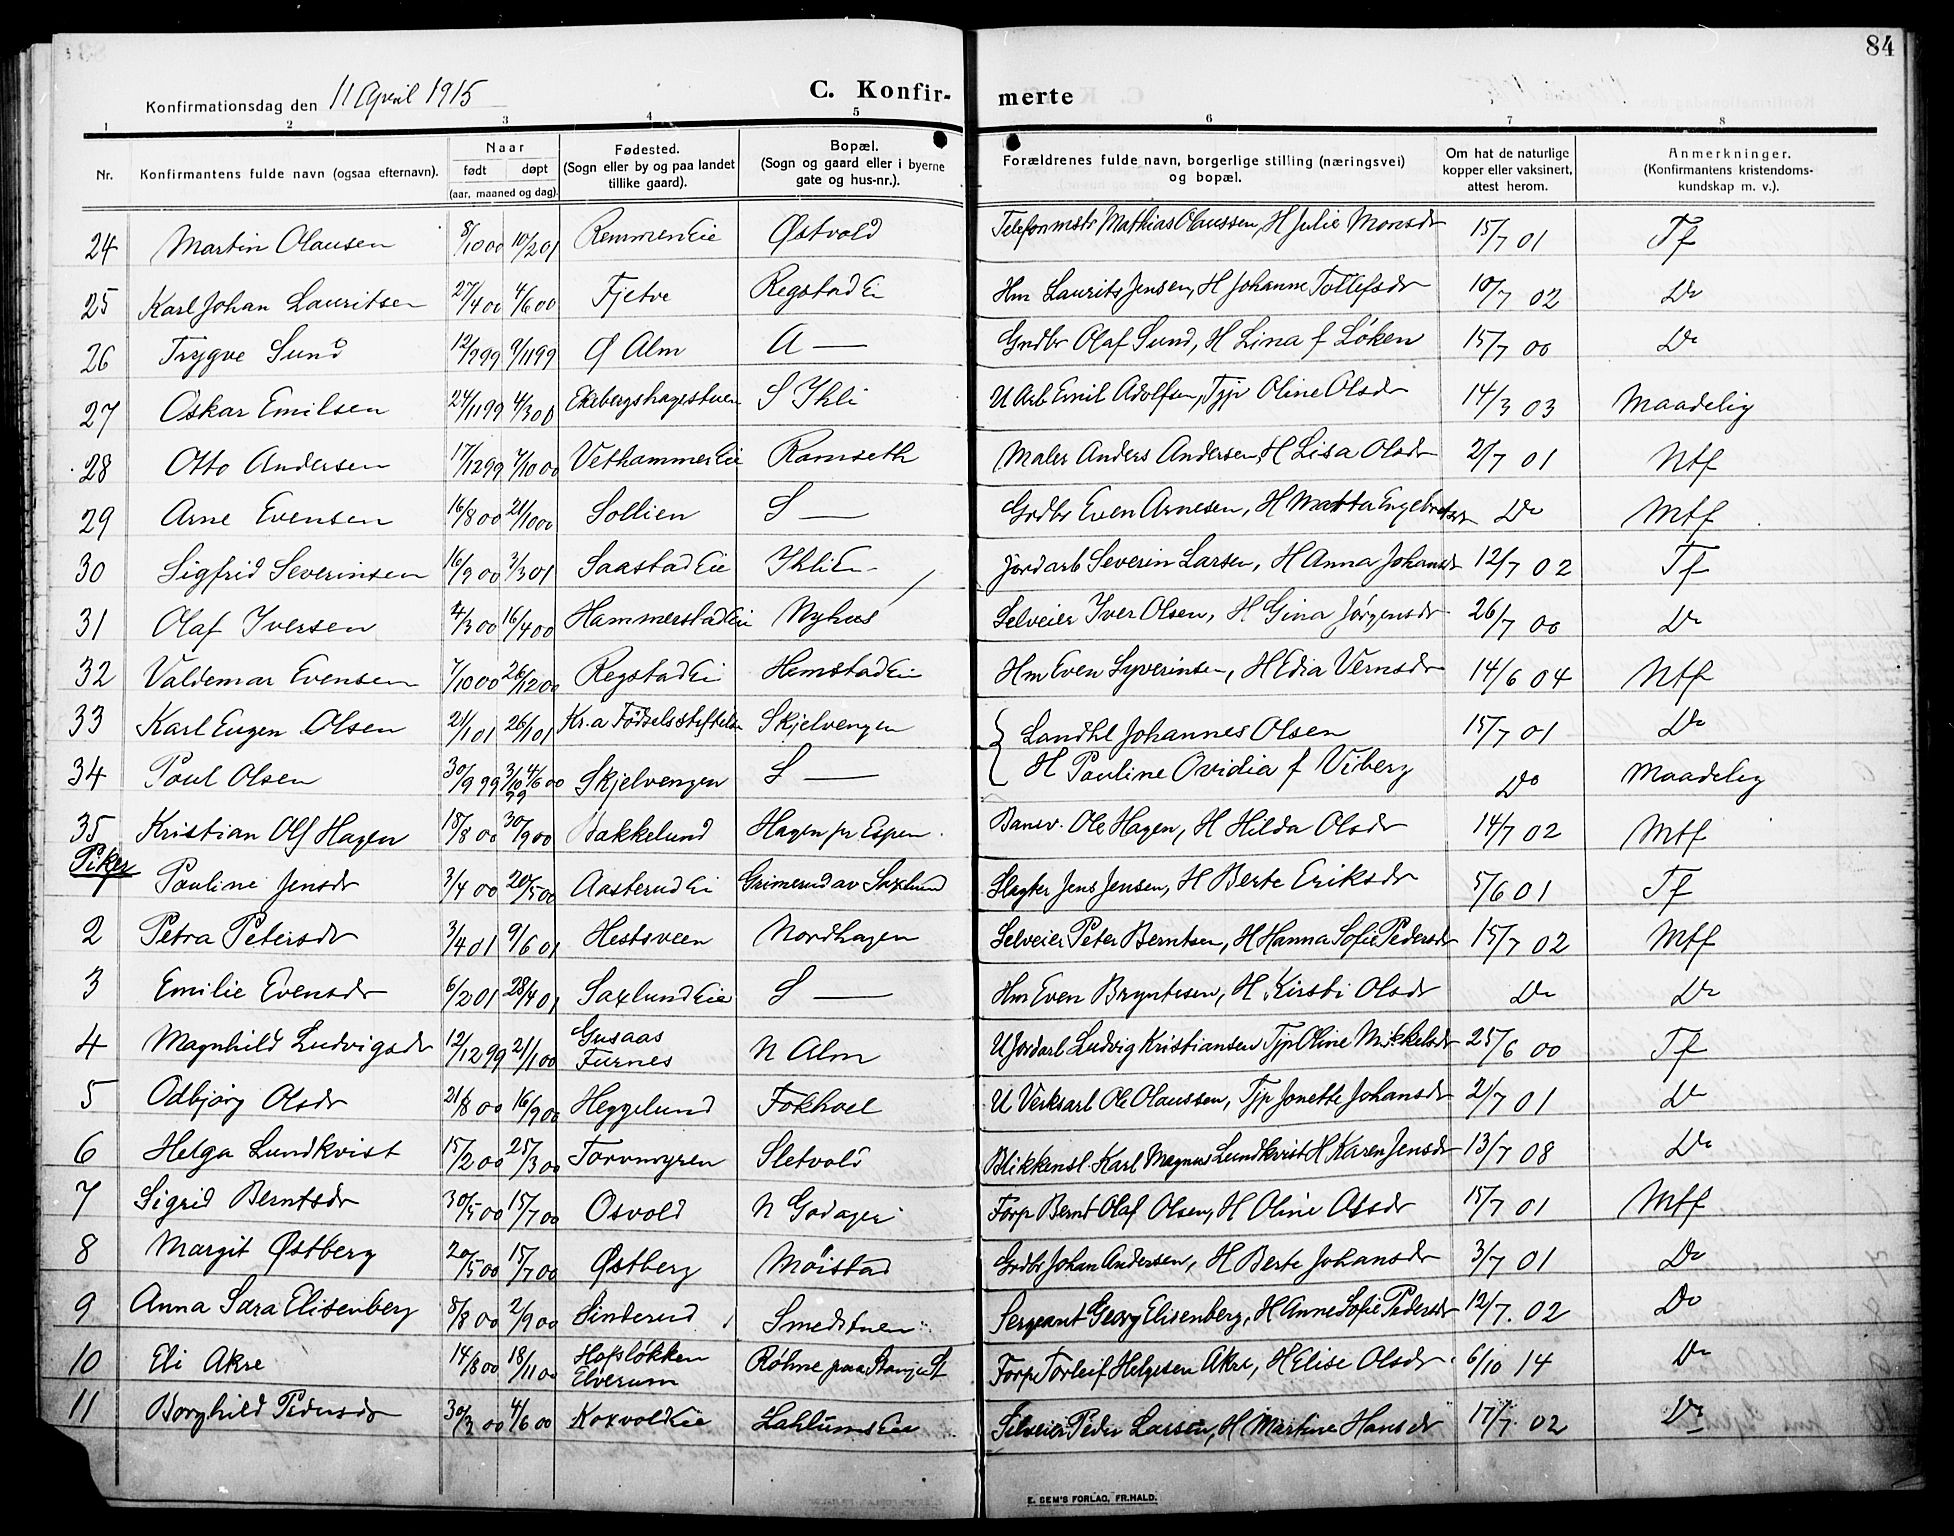 84
Konfirmationsdag den 11 April 1915
C. Konfir- merte
1 2 3 4 5 6 7 8
Nr. Konfirmantens fulde navn (ogsaa efternavn). Naar født døpt (aar, maaned og dag). Fødested. (Sogn eller by og paa landet tillike gaard). Bopæl. (Sogn og gaard eller i byerne gate og hus-nr.). Forældrenes fulde navn, borgerlige stilling (næringsvei) og bopæl. Om hat de naturlige kopper eller vaksinert, attest herom. Anmerkninger. (Konfirmantens kristendoms-kundskap m. v.).
24 Martin Olausen 8/10 00 10/2 01 Remmen Eie Østvold Telefonmstr Mathias Olaussen, H Julie Monsdr 15/7 01 Tf
25 Karl Johan Lauritsen 27/4 00 4/6 00 Fjetve Regstad Ei Hm Laurits Jensen, H Johanne Tollefsdr 10/7 02 Do
26 Trygve Sund 12/9 99 9/11 99 Ø Alm A — Grdbr Olaf Sund, H Lina f Løken 15/7 00 Do
27 Oskar Emilsen 24/11 99 4/3 00 Ekebergshagestuen S Ihli U Arb Emil Adolfsen, Tjp Oline Olsdr 14/3 03 Maadelig
28 Otto Andersen 17/12 99 7/10 00 Vethammer Eie Romseth Maler Anders Andersen, H Lisa Olsdr 2/7 01 Ntf
29 Arne Evensen 16/8 00 21/10 00 Sollien S — Grdbr Even Arnesen, H Matta Engebretsdr Do Mtf
30 Sigfrid Severinsen 16/3 00 3/3 01 Saastad Eie Ihli E. Jordarb Severin Larsen, H Anna Johansdr 12/7 02 Tf
31 Olaf Iversen 4/3 00 16/4 00 Hammerstad Eie Nyhus Selveier Iver Olsen, H Gina Jørgensdr 26/7 00 Do
32 Valdemar Evensen 7/10 00 26/12 00 Regstad Ei Hemstad Ei Hm Even Syverinsen, H Edia Vernsdr 14/6 04 Ntf
33 Karl Eugen Olsen 21/1 01 26/1 01 Kr.a Fødselsstiftelse Skjelvengen Landhl Johannes Olsen 15/7 01 Do
34 Poul Olsen 30/9 99 3/10 99 4/6 00 Skjelvengen S — H Pauline Ovidia f Viberg Do Maadelig
35 Kristian Olf Hagen 18/8 00 30/9 00 Bakkelund Hagen pr Espen. Banev. Ole Hagen, H Hilda Olsdr 14/7 02 Mtf
Piker
Pauline Jensdr 3/4 00 20/5 00 Aasterud Ei Grimerud av Saxlund Slagter Jens Jensen, H Berte Eriksdr 5/6 01 Tf
2 Petra Petersdr 3/4 01 9/6 01 Hestsveen Nordhagen Selveier Peter Berntsen, H Hanna Sofie Pedersdr 15/7 02 Mtf
3 Emilie Evensdr 6/2 01 28/4 01 Saxlund Eie S — Hm Even Bryntesen, H Kirsti Olsdr Do Do
4 Magnhild Ludvigsdr 12/12 99 21/1 00 Gusaas Furnes N Alm U Jordarb Ludvig Kristiansen Tjp Oline Mikkelsdr 25/6 00 Tf
5 Odbjørg Olsdr 21/8 00 16/9 00 Heggelund Fokhoel U Verksarb Ole Olaussen, Tjp Jonette Johansdr 2/7 01 Do
6 Helga Lundkvist 15/2 00 25/3 00 Torvmyren Sletvold Blikkensl. Karl Magnus Lundkvist H Karen Jensdr 13/7 08 Do
7 Sigrid Berntsdr 30/5 00 15/7 00 Osvold N Godager Forp Bernt Olaf Olsen, H Oline Olsdr 15/7 01 Mtf
8 Margit Østberg 20/5 00 15/7 00 Østberg Møistad Grdbr Johan Andersen, H Berte Johansdr 3/7 01 Do
9 Anna Sara Elisenberg 8/8 00 2/9 00 Sinterud Smedstuen Sergeant Georg Elisenberg, H Anne Sofie Pedersdr 12/7. 02 Do
10 Eli Akre 14/8 00 18/11 00 Hofsløkken Elverum Røhne paa Stange St Forp Torleif Helgesen Akre, H Elise Olsdr 6/10 14 Do
11 Borghild Pedersdr 30/3 00 4/6 00 Koxvold Eie Lahlums Eie Selveier Peder Larsen, H Martine Hansdr 17/7 02 Do
E. SEM'S FORLAG, FR.HALD.